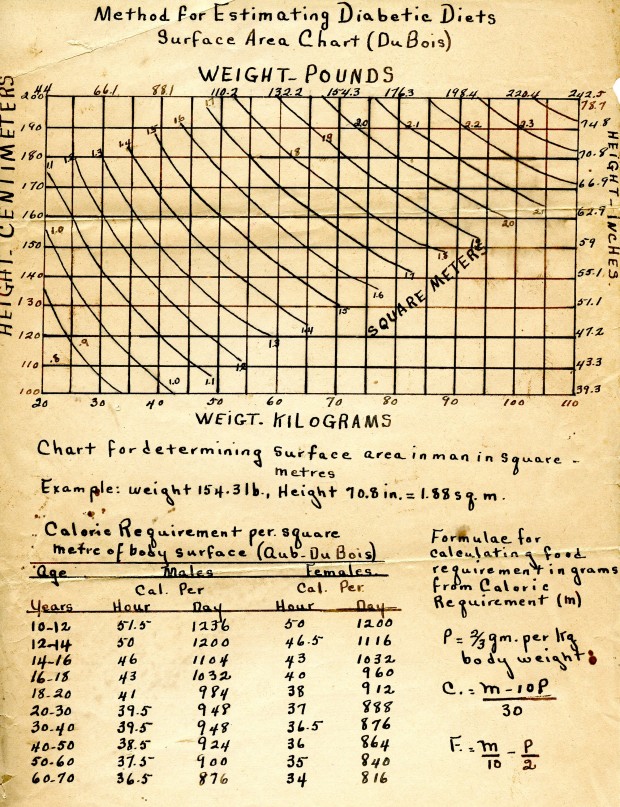 Method for Estimating Diabetic Diets
Surface Area Chart (DuBois)
WEIGHT-POUNDS
44 66.1 88.1 110.2 132.2 154.3 176.3 198.4 220.4 242.5
HEIGHT-CENTIMETERS
200 78.7
190 74.8
180 70.8
170 66.9
160 62.9
150 59
140 55.1
130 51.1
120 47.2
110 43.3
100 39.3
HEIGHT-INCHES.
1.1 1.2 1.3 1.4 1.5 1.6 1.7 1.8 1.9 2.0 2.1 2.2 2.3
1.0
.9
.8
1.0 1.1 1.2 1.3 1.4 1.5 1.6 1.7 1.8 20
SQUARE METERS
20 30 40 50 60 70 80 90 100 110
WEIGT. KILOGRAMS
Chart for determining surface area in man in square -
metres
Example: weight 154.3 lb., Height 70.8 in. = 1.88 sq. m.
Calorie Requirement per. square
metre of body surface (Aub-DuBois)
Age Males Females.
Cal. Per Cal. Per.
Years Hour Day Hour Day
10-12 51.5 1236 50 1200
12-14 50 1200 46.5 1116
14-16 46 1104 43 1032
16-18 43 1032 40 960
18-20 41 984 38 912
20-30 39.5 948 37 888
30-40 39.5 948 36.5 876
40-50 38.5 924 36 864
50-60 37.5 900 35 840
60-70 36.5 876 34 816
Formulae for
calculating food
requirement in grams
from Caloric
Requirement (m)
P = 2/3 gm. per kg
body weight
C. = m - 10P
30
F. = m/10 - P/2